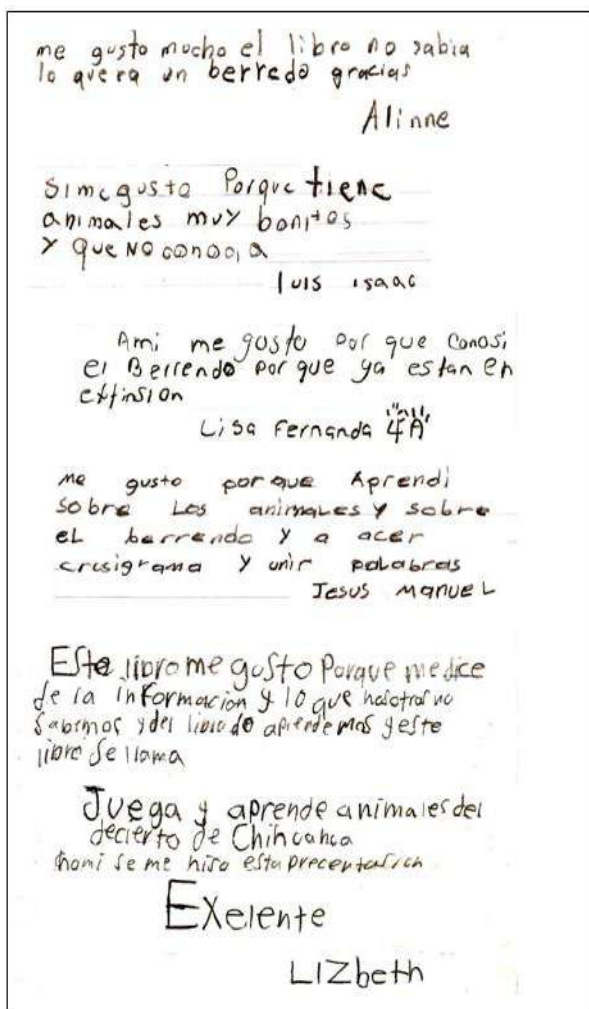 me gusto mucho el libro no sabia
lo quera un berredo gracias
Alinne
Si me gusto Porque tiene
animales muy bonitos
Y que NO conocia
luis isaac
Ami me gusto por que conosi
el Berrendo por que ya estan en
extinsion
Lisa Fernanda 4A
me gusto porque Aprendi
sobre Los animales y sobre
eL berrendo y a acer
crusigrama y unir palabras
Jesus ManueL
Este libro me gusto Porque me dice
de la informacion y lo que nosotros no
sabemos y del libro aprendemos y este
libro se llama
Juega y aprende animales del
decierto de Chihuahua
se me hiso esta precentasion
Exelente
LIZbeth